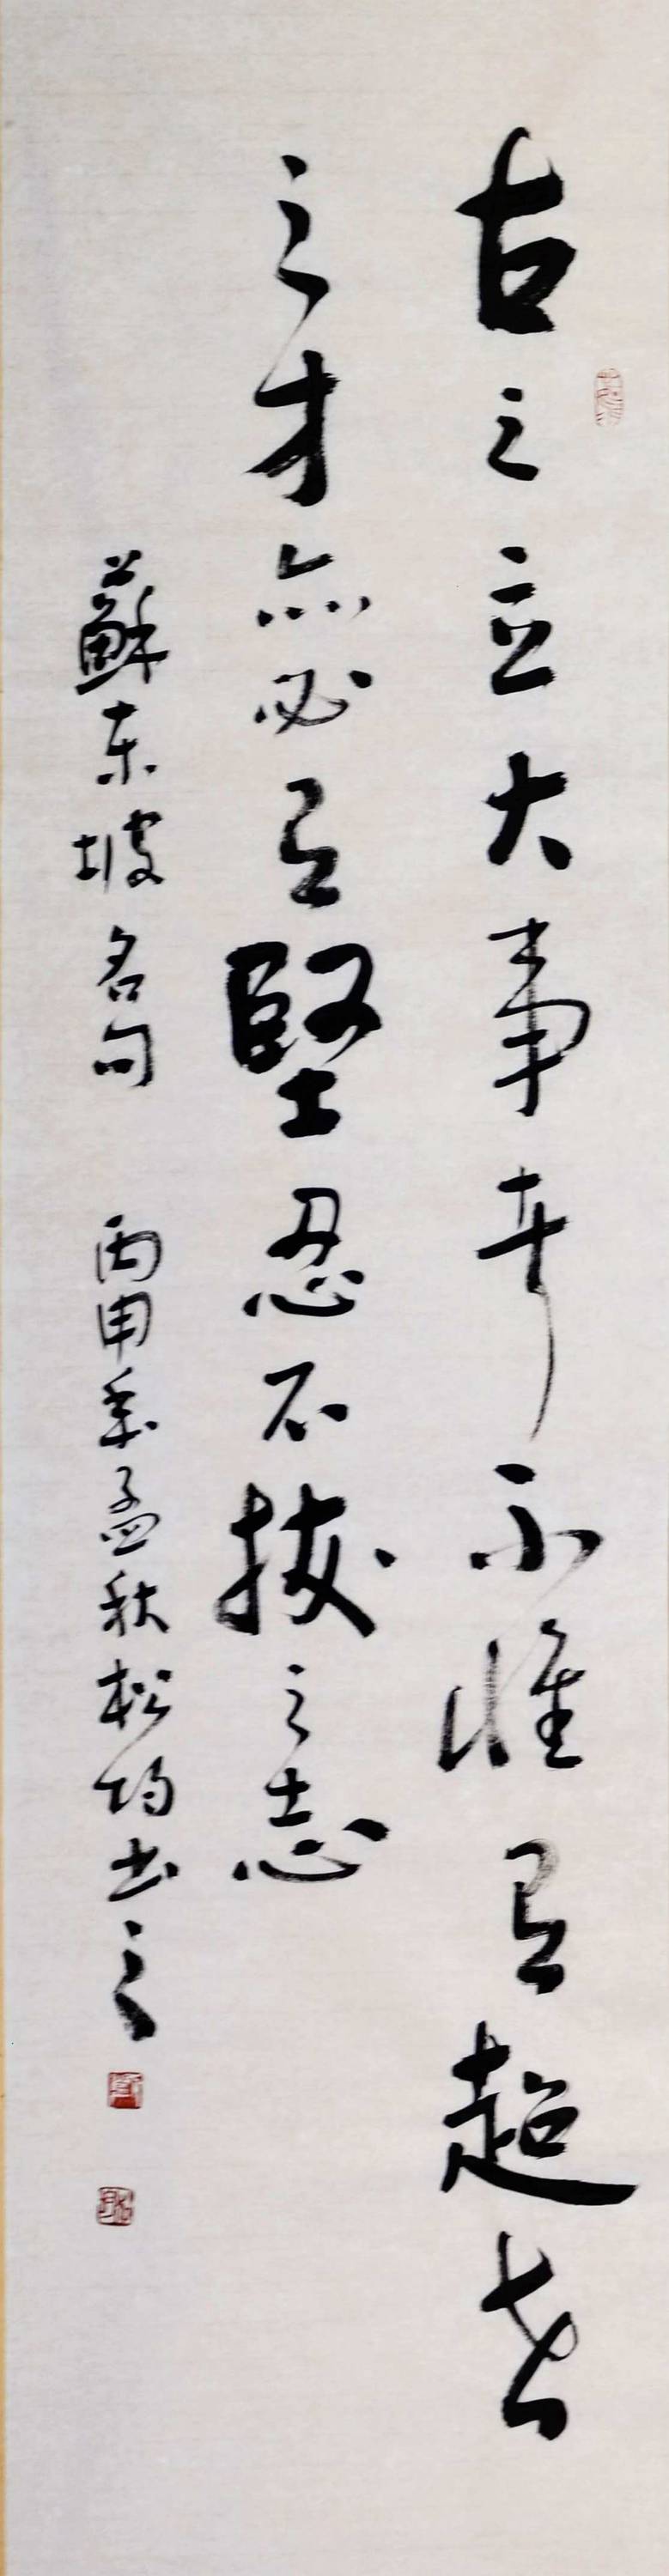 古之立大事者不惟有超世
之才亦必有堅忍不拔之志
蘇东坡名句 丙申年孟秋松书之